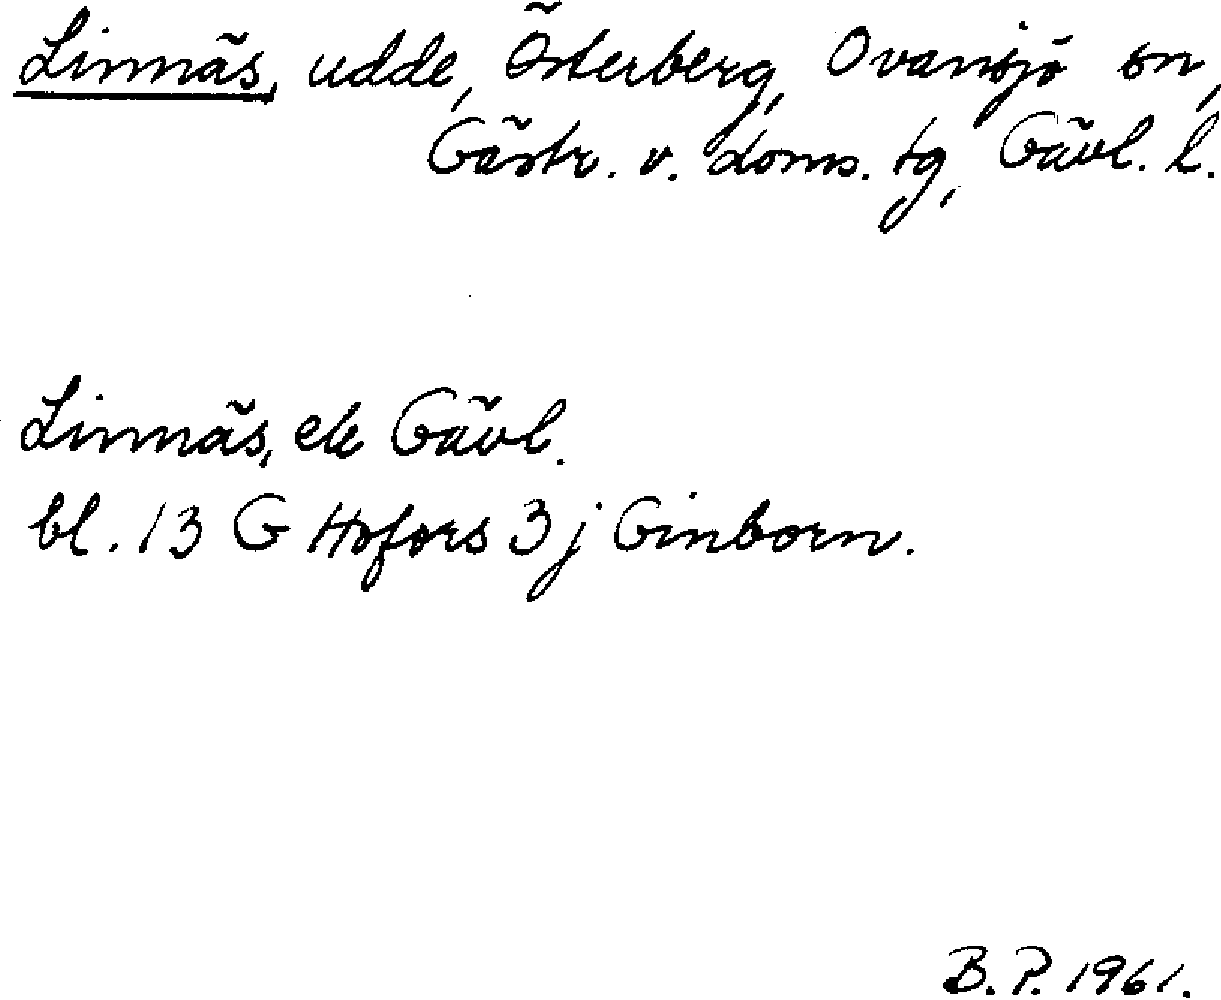 Linnäs, udde, Österberg, Ovansjö sn,
Gästr. v. doms. tg, Gävl. l.
Linnäs, ek Gävl.
bl. 13 G Hofors 3 j Ginborn.
B. P. 1961.